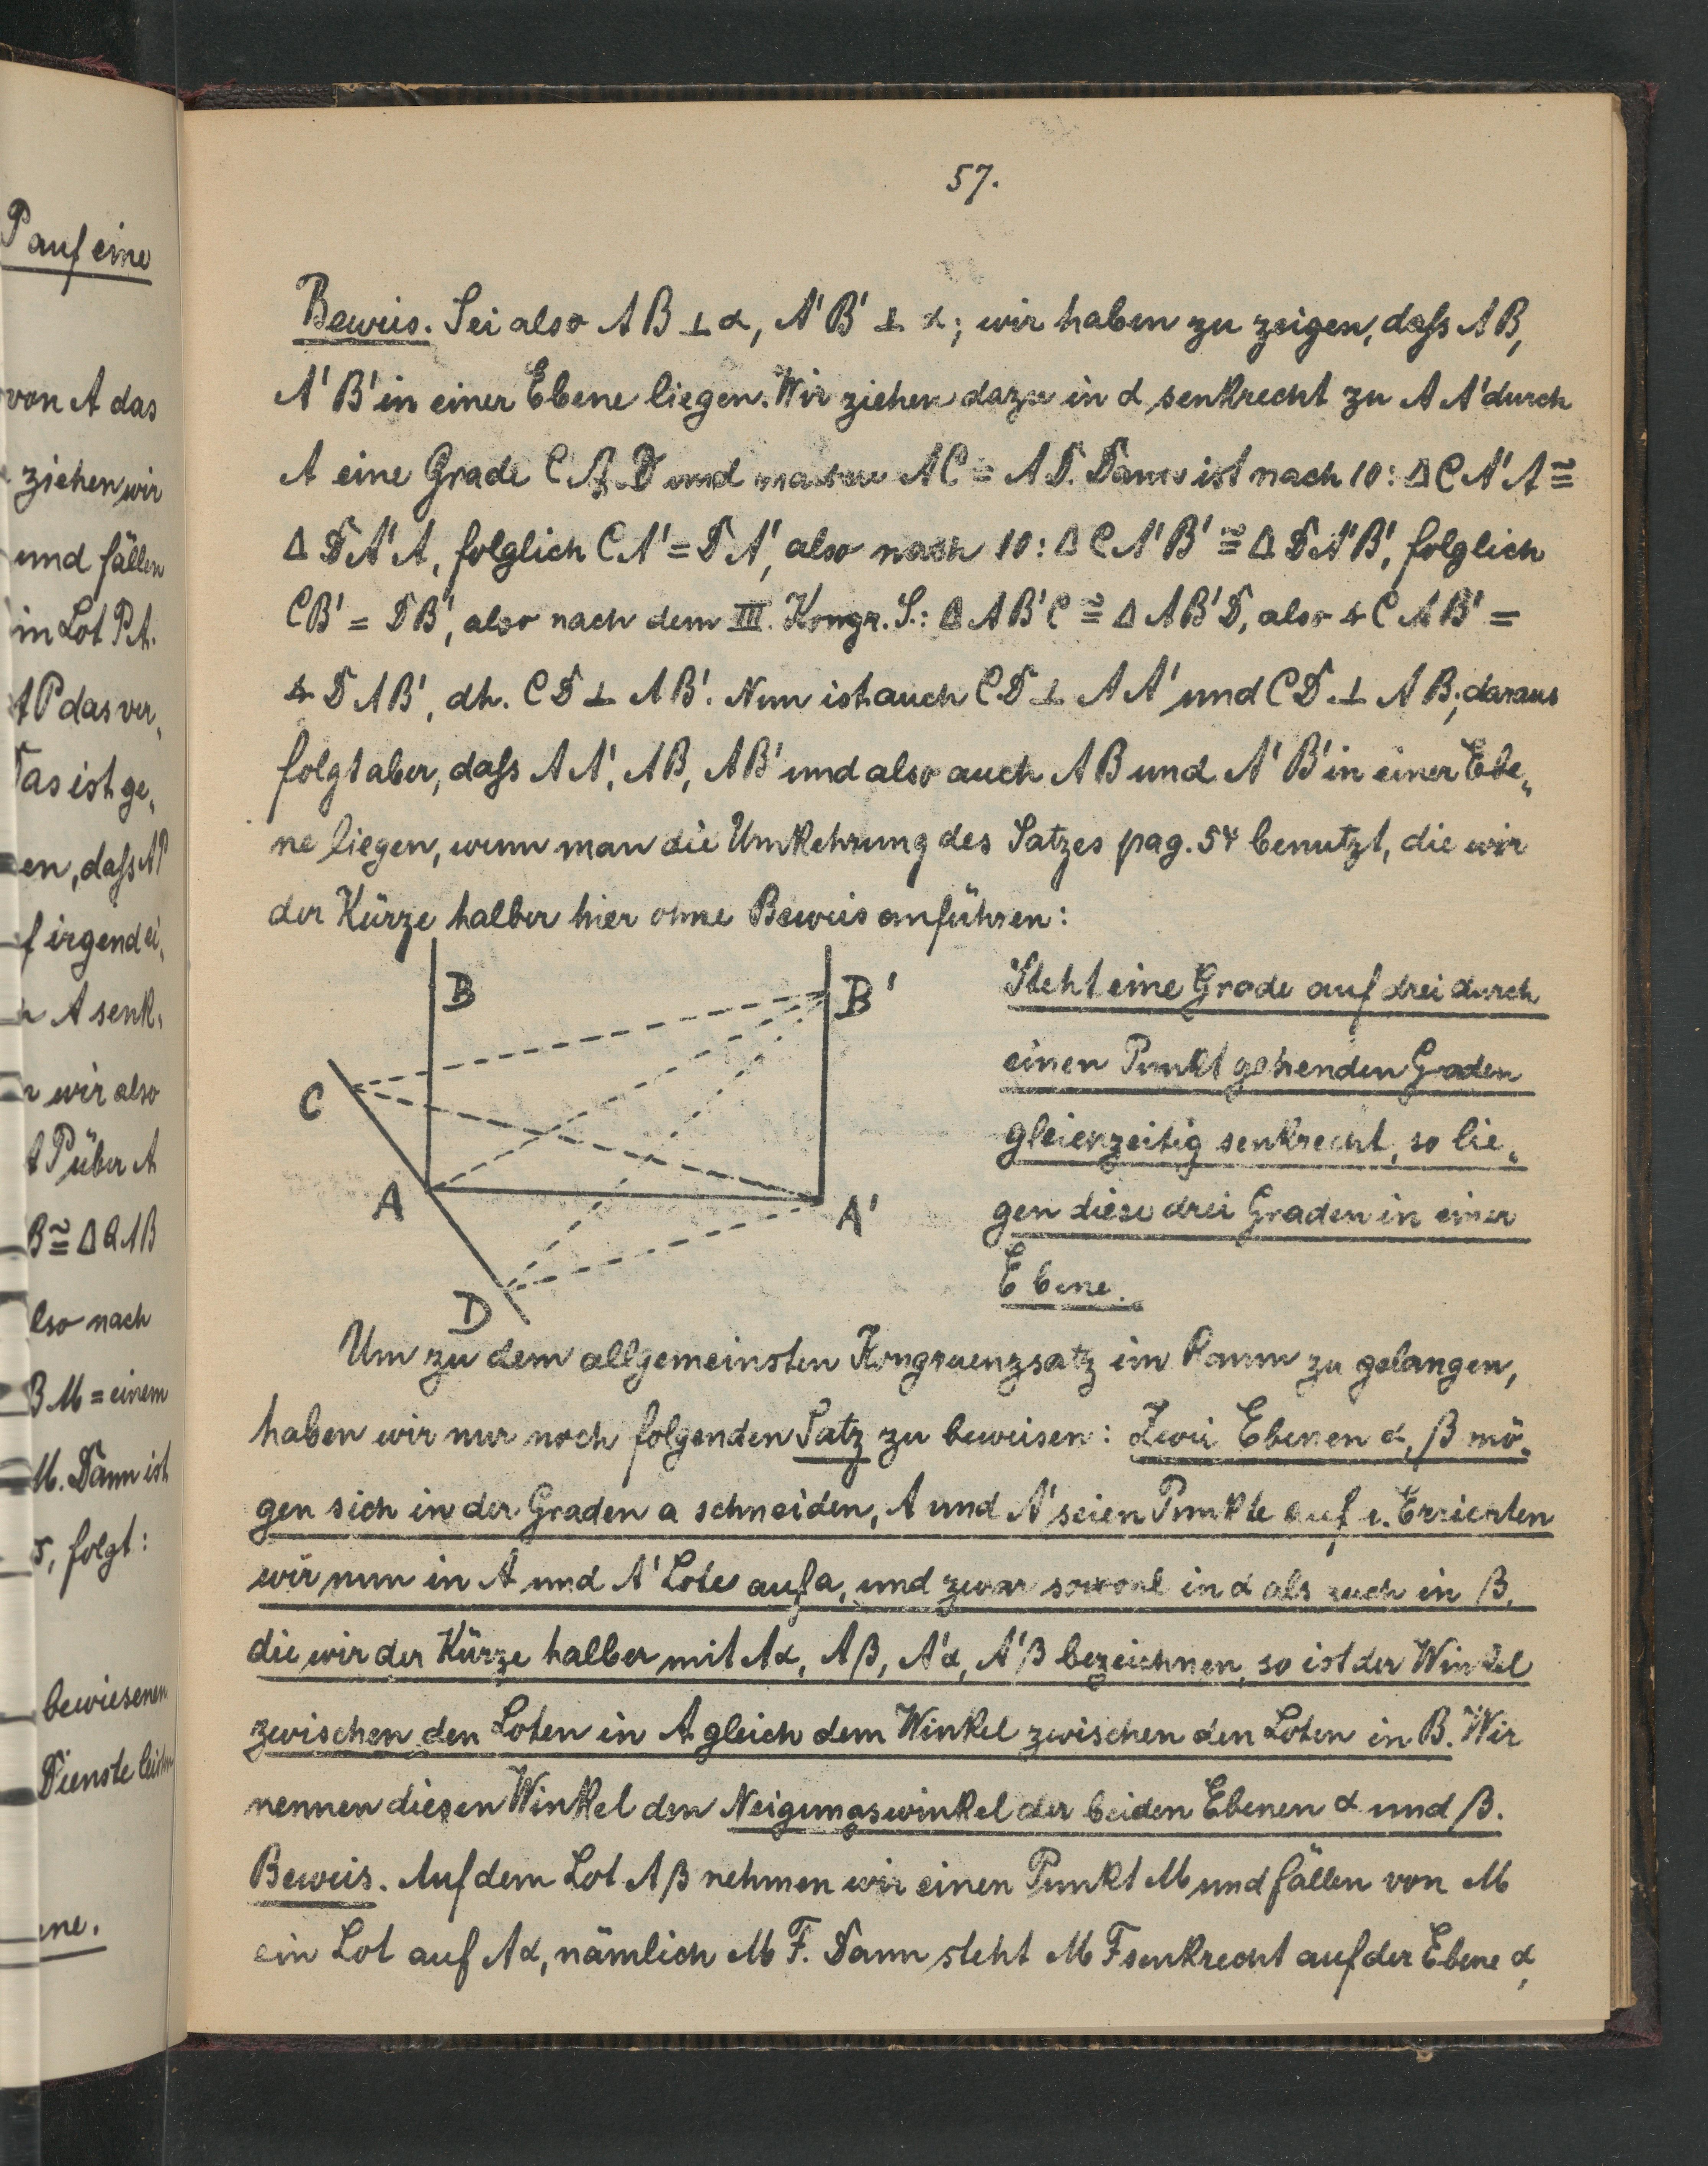 P auf eine
von A das
ziehen wir
und fällen
in Lot PA.
AP das ver„
Das ist ge„
en, daſs AP
f irgend ei„
A senk„
wir also
AP über A
B ≅ Δ QAB
lso nach
BM = einem
M. Dann ist
5, folgt:
bewiesenen
Dienste leisten
ene.
57.
Beweis. Sei also AB ⊥ α, A'B' ⊥ α; wir haben zu zeigen, daſs AB,
A'B' in einer Ebene liegen. Wir ziehen dazu in α senkrecht zu AA' durch
A eine Grade CAD und machen AC = AD. Dann ist nach 10: Δ CA'A ≅
Δ DA'A, folglich CA' = DA', also nach 10: Δ CA'B' ≅ Δ DA'B', folglich
CB' = DB', also nach dem III. Kongr. S.: Δ AB'C ≅ Δ AB'D, also ∢ CAB' =
∢ DAB', dh. CD ⊥ AB'. Nun ist auch CD ⊥ AA' und CD ⊥ AB; daraus
folgt aber, daſs AA', AB, AB' und also auch AB und A'B' in einer Ebe„
ne liegen, wenn man die Umkehrung des Satzes pag. 54 benutzt, die wir
der Kürze halber hier ohne Beweis anführen:
B
B'
C
A
A'
D
Steht eine Grade auf drei durch
einen Punkt gehenden Graden
gleichzeitig senkrecht, so lie„
gen diese drei Graden in einer
Ebene.
Um zu dem allgemeinsten Kongruenzsatz im Raum zu gelangen,
haben wir nur noch folgenden Satz zu beweisen: Zwei Ebenen α, β mö„
gen sich in der Graden a schneiden, A und A' seien Punkte auf a. Errichten
wir nun in A und A' Lote auf a, und zwar sowohl in α als auch in β,
die wir der Kürze halber mit Aα, Aβ, A'α, A'β bezeichnen, so ist der Winkel
zwischen den Loten in A gleich dem Winkel zwischen den Loten in B. Wir
nennen diesen Winkel den Neigungswinkel der beiden Ebenen α und β.
Beweis. Auf dem Lot Aβ nehmen wir einen Punkt M und fällen von M
ein Lot auf Aα, nämlich MF. Dann steht MF senkrecht auf der Ebene α,